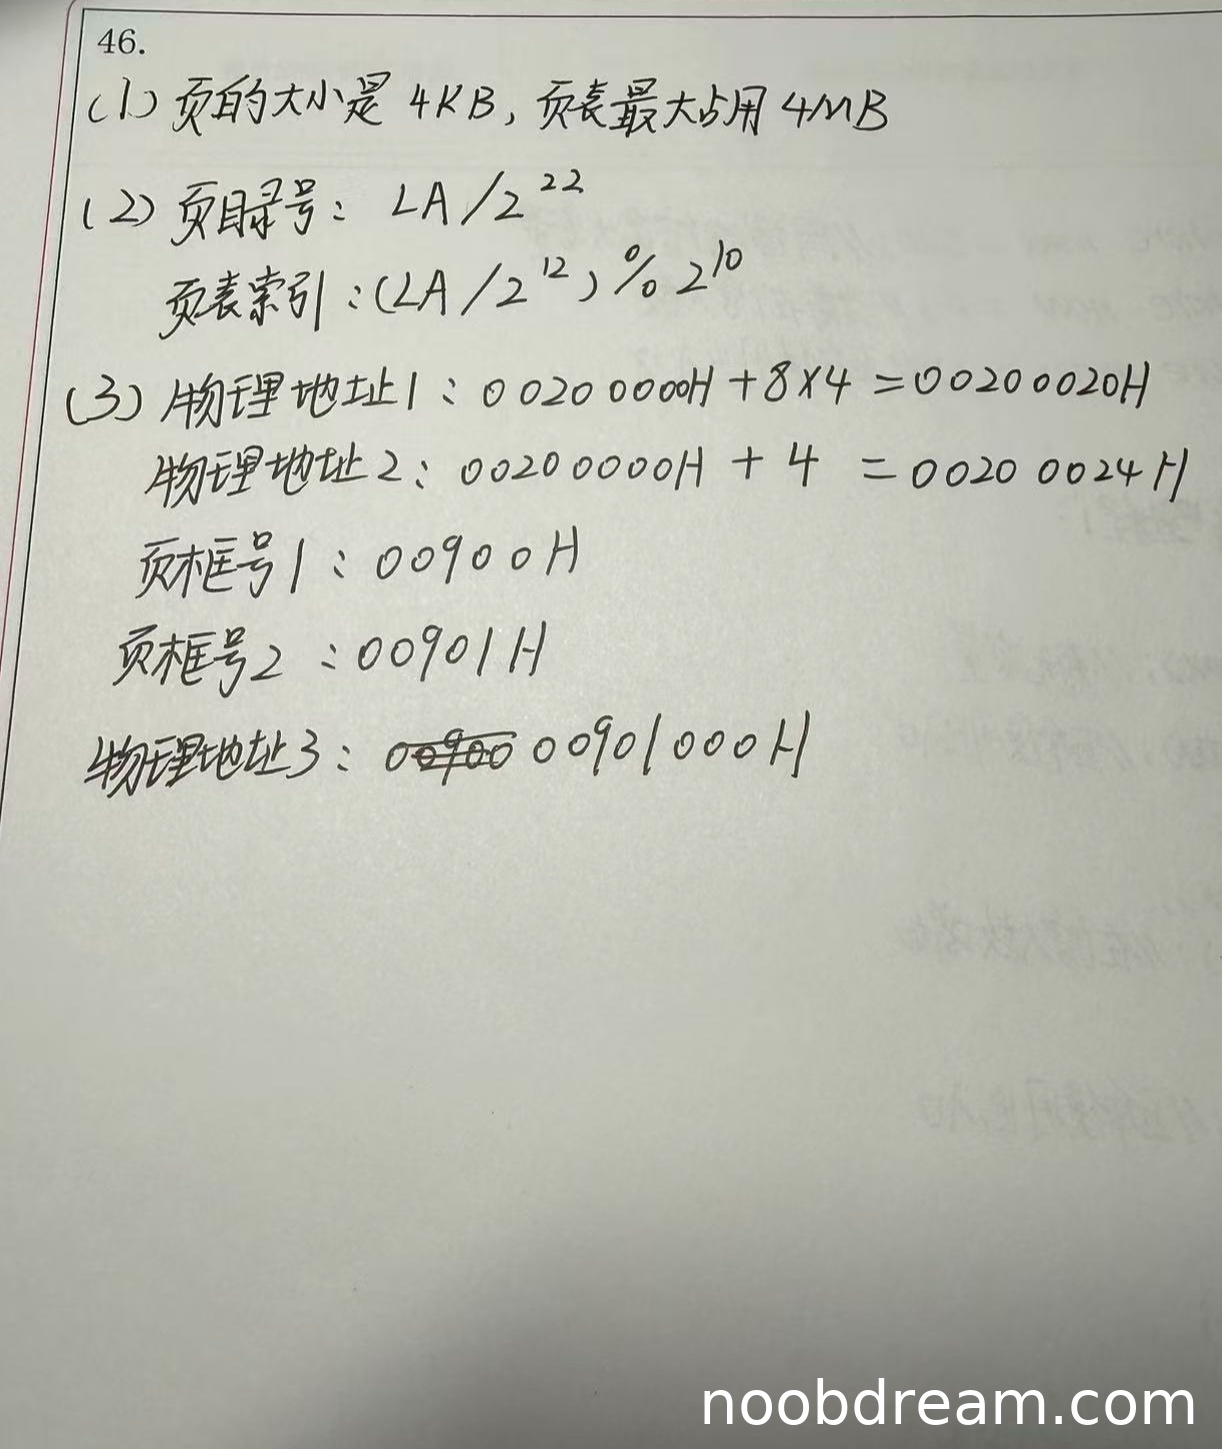 46.
(1) 页的大小是 4KB, 页表最大占用 4MB
(2) 页目录号: LA/2^22
页表索引: (LA/2^12) % 2^10
(3) 物理地址1: 0020 0000H + 8×4 = 0020 0020H
物理地址2: 0020 0000H + 4 = 0020 0024H
页框号1: 00900H
页框号2: 00901H
物理地址3: 00900 00901000H
noobdream.com